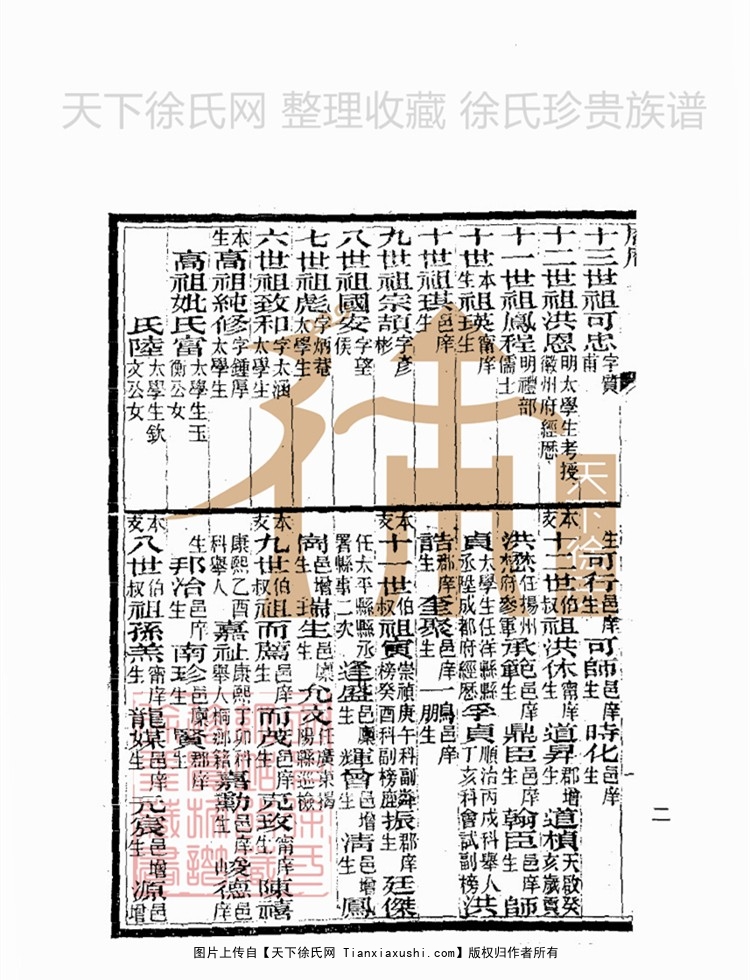 天下徐氏网 整理收藏 徐氏珍贵族谱
十三世祖可忠字質甫
十二世祖洪恩明太學生考授徽州府經歷
十一世祖鳳程明禮部儒士
十世本生祖
十世祖琪邑庠生
九世祖宗頡字彥彬
八世祖國安字望侯
七世祖彪字炳菴太學生
六世祖致和字太涵太學生
本生高祖純修字鍾厚太學生
高祖妣氏富太學生玉衡公女
氏陸太學生欽文公女
生可行邑庠生可師邑庠生時化邑庠生
本支十一世伯叔祖洪休甯庠生道昇郡增生道楨天啟癸亥歲貢
洪烝任揚州府參軍承範邑庠生鼎臣邑庠生翰臣邑庠生師
貞太學生任洋縣縣丞陞成都府經歷孚貞順治丙戌科舉人丁亥科會試副榜洪
誥郡庠生奎聚邑庠生一鵬邑庠生
本支十一世伯叔祖寅崇禎庚午科副榜癸酉科副榜舜座振郡庠生廷傑
任太平縣縣丞署縣事二次逢盛邑廩生輝曾邑增生淸邑增生鳳
喬邑增生瑞生邑廩生允文任廣東揭陽縣巡檢
本支九世伯叔祖而薦邑庠生而茂邑庠生克玫甯庠生陳禧
康熙乙酉科舉人嘉祉康熙丁卯科舉人桐鄉籍嘉勳邑庠生峻德邑庠
生邦冶邑庠生南珍邑廩生賢郡庠
本支八世伯叔祖孫羔甯庠生龍媒邑庠生元宸邑增生源邑增
二
天下徐氏
图片上传自【天下徐氏网 Tianxiaxushi.com】版权归作者所有